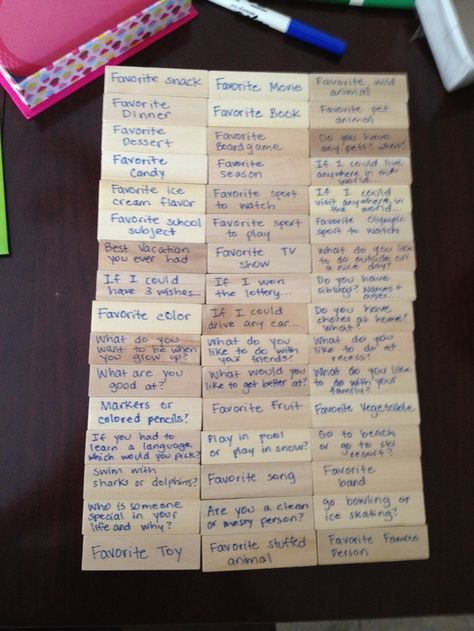 Favorite snack
Favorite Movie
Favorite wild
animal
Favorite
Dinner
Favorite Book
Favorite pet
animal
Favorite
Dessert
Favorite
Boardgame
Do you have
any pets? what?
Favorite
Candy
Favorite
season
If I could live
anywhere in the
world...
Favorite ice
cream flavor
Favorite sport
to watch
If I could
visit anywhere in
the world...
Favorite school
subject
Favorite sport
to play
Favorite Olympic
sport to watch
Best Vacation
you ever had
Favorite TV
show
What do you like
to do outside on
a nice day?
If I could
have 3 wishes...
If I won
the lottery...
Do you have
siblings? Names &
ages...
Favorite color
If I could
drive any car...
Do you have
chores at home?
What?
What do you
want to be when
you grow up?
What do you
like to do with
your friends?
What do you
like to do at
recess?
What are you
good at?
What would you
like to get better at?
What do you like
to do with your
family?
Markers or
colored pencils?
Favorite Fruit
Favorite Vegetable
If you had to
learn a language
which would you pick?
Play in pool
or play in snow?
Go to beach
or go to ski
resort?
Swim with
sharks or dolphins?
Favorite song
Favorite
band
Who is someone
special in your
life and why?
Are you a clean
or messy person?
go bowling or
ice skating?
Favorite Toy
Favorite stuffed
animal
Favorite Famous
Person